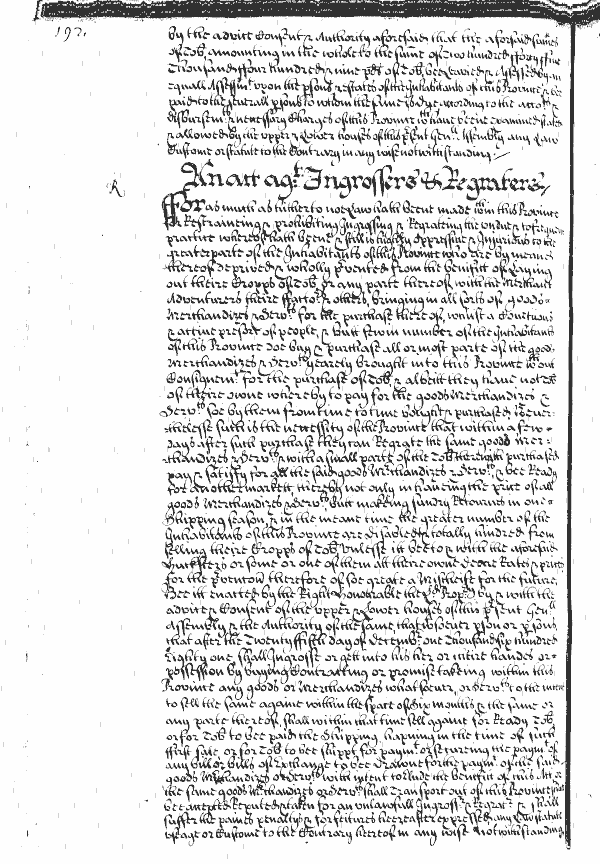 192.
by the advice Consent & Authority aforesaid that the aforsaid sumes
of Tob. amounting in the whole to the sume of Two hundred fforty ffive
Thousand ffour hundred & nine pds of Tob. bee Leavied & Assessed by an
equall Assessmt. upon the psons & estates of the Inhabitants of this Province & be
paid to the severall psons to whom the same is due according to the
disbursmts. & necessary Charges of this Province as have beene examined stated
& allowed by the upper & Lower houses of this psent Genll. Assembly any Law
Custome or statute to the Contrary in any wise notwithstanding
R
An act agt. Ingrossers & Regraters
fforasmuch as hitherto noe Law hath beene made wthin this Province
for Restraineing & prohibiting Ingrossing & Regrateing the undue & too frequent
practice whereof hath beene & still is highly oppressive & Injurious to the
greater parte of the Inhabitants of this Province who are by means
thereof deprived & wholly pvented from the benefitt of Laying
out theire Cropps of Tob. or any parte thereof with the Merchant
Adventurers theire ffactors & others, bringing in all sorts of goods
Merchandizes & Servts. for the purchase thereof, whilst a Covetious
& active pt of people, & butt few in number of the Inhabitants
of this Province doe buy & purchase all or most parte of the goods
Merchandizes & Servts. yearely brought into this Province wthout
Consignemt. for the purchase of Tob. & albeitt they have not Tob
of theire owne whereby to pay for the goods Merchandizes &
Servts. soe by them from time to time bought & purchased Never-
thelesse such is the necessity of the Province that within a few
days after such purchase they can Regrate the same goods Mer-
chandizes & Servts. with a small parte of the Tob. therewith purchased
pay & satisfy for all the said goods Merchandizes & Servts. & bee Ready
for another markett, thereby not only inhanceing the price of all
goods Merchandizes & Servts. butt makeing sundry Returnes in one
Shipping season, & in the meane time the greater number of the
Inhabitants of this Province are disabled & totally hindred from
selling theire Cropps of Tob. Unlesse itt bee to & with the aforesaid
Hucksters or some or one of them att theire owne deare Rates & prices
for the pvention therefore of soe greate a Mischeife for the future,
Bee itt enacted by the Right Honoble the Ld. Propry. by & with the
advice & Consent of the upper & Lower houses of this psent Genll.
Assembly & the Authority of the same, that whosoever pson or psons
that after the Twenty ffifth day of decembr. one Thousand six hundred
Eighty one, shall Ingrosse or gett into his her or theire hands or
possession by buying Contracting or promise takeing within this
Province any goods or Merchandizes whatsoever, or Servts. to the intent
to sell the same againe within the space of six months & the same or
any parte thereof, shall within that time sell againe for Ready Tob.
or for Tob. to bee paid the Shipping, happning in the time of such
ffirst sale, or for Tob. to bee shippt for paymt. or secureing the paymt. of
any bill or bills of Exchange to bee drawne for the paymt. of the said
goods Merchandizes or Servts. with intent to elude the benefitt of this Act or
the same goods Merchandizes or Servts. shall Transport out of this Province shall
bee accepted Reputed & taken for an unlawfull Ingrosser & Regratr. & shall
suffer the paines penaltys & forfeitures hereafter expressed any Law statute
usage or Custome to the Contrary hereof in any wise Notwithstanding